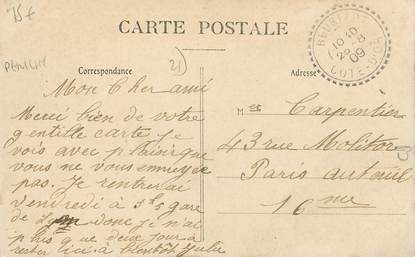 15f
CARTE POSTALE
PENUIN
21
Correspondance
Adresse
10 10
28-8
09
COTE-D'OR
Mon Cher ami
Merci bien de votre
gentille carte je
vois avec plaisir que
vous ne vous ennuyez
pas. Je rentrerai
vendredi à 5h gare
de Lyon donc je n'ai
plus que deux jours à
rester ici à bientôt Julie
M Carpentier
43 rue Molitor
Paris auteuil
16me